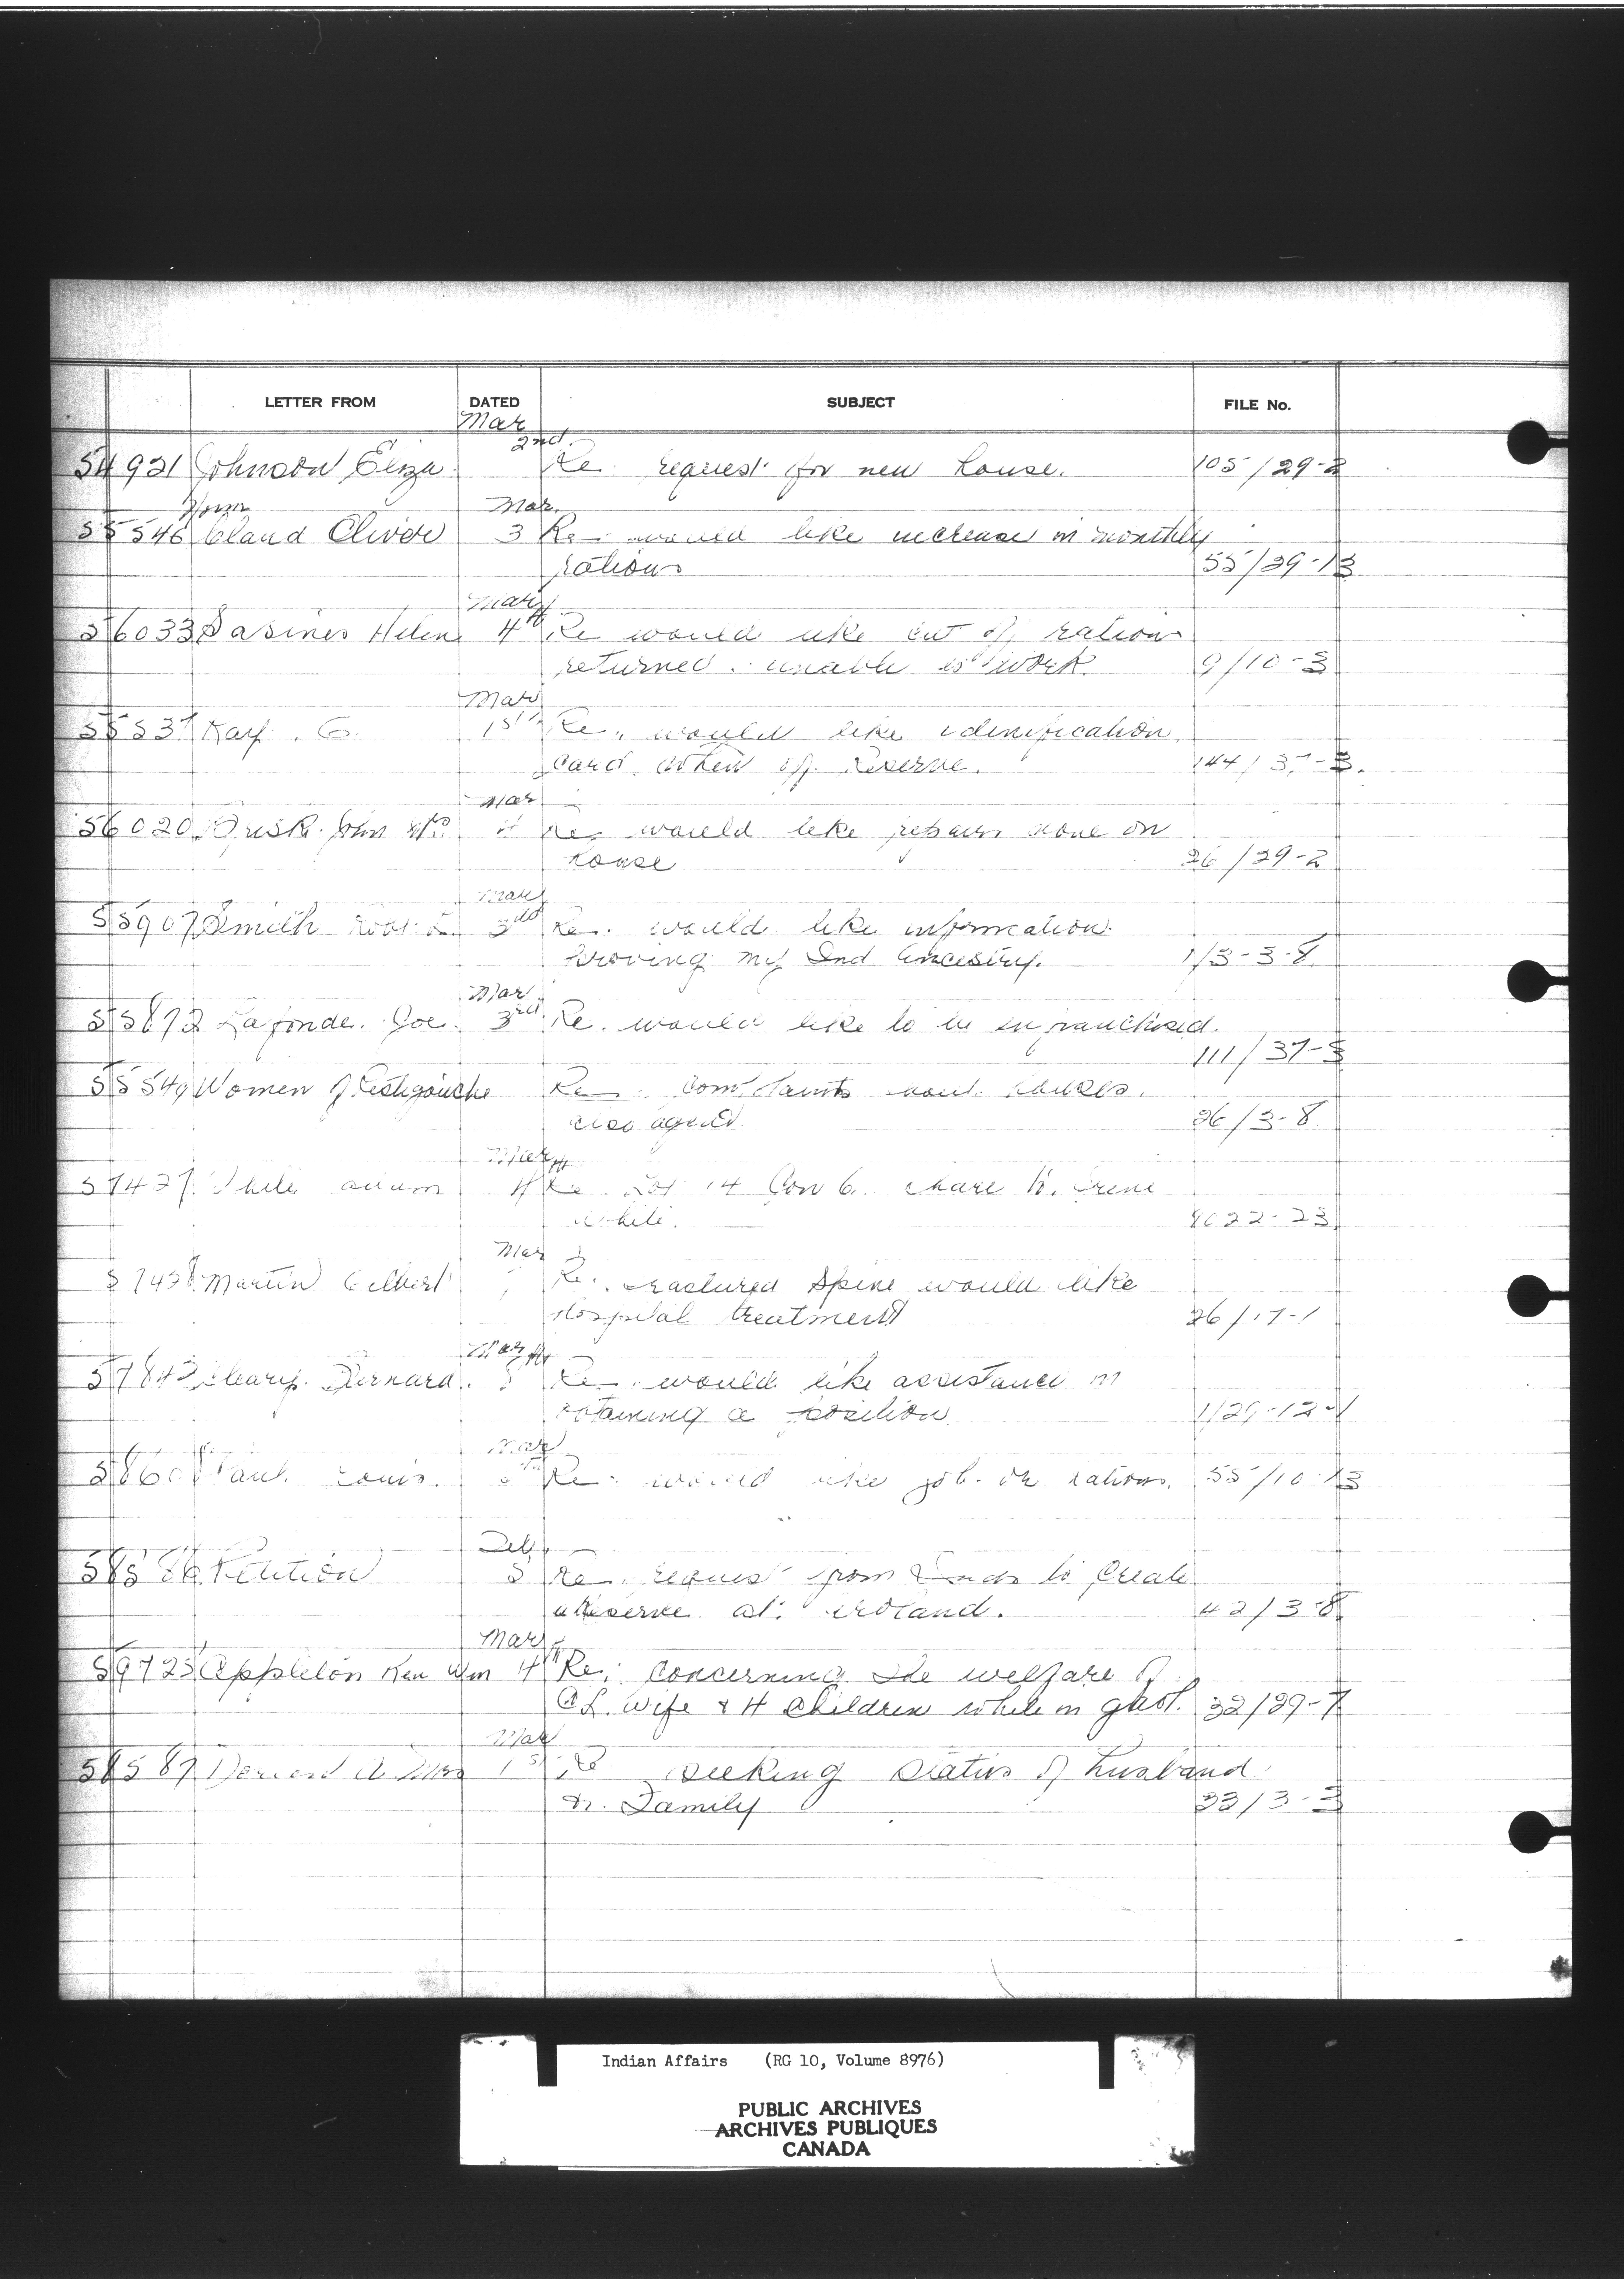 LETTER FROM DATED SUBJECT FILE No.
Mar
2nd.
54921 Johnson Eliza Re request for new house. 105/29-2
Mar.
55546 Claud Oliver 3 Re would like increase in monthly
rations 55/29-13
Mar
56033 Helen 4th Re would like cut off rations
returned. unable to work. 9/10-3
Mar
Kay. G. 1st Re. would like idenification
card. when off Reserve.
Mar
56020 John Mrs 4 Re would like repairs done on
house 26/29-2
Mar
55907 Smith Robt. 3rd Re. would like information
proving my Ind Ancestry. 1/3-3-8
Mar
55872 Lafonde. Joe. 3rd Re. would like to be enfranchised.
111/37-3
55549 Women of Restigouche Re. Complaints houses.
also agent. 26/3-8
Mar
57427 White 4th Re Lot 14 Con 6. share to Irene
White. 9022-23
Mar
57428 Martin Gilbert Re. Fractured Spine would like
Hospital treatment 26/17-1
Mar
57842 Cleary. Bernard. Re would like assistance in
obtaining a position 1/29-12-1
Mar
58608 Paul Louis. Re would like job. or rations. 55/10-13
Petition 5 Re request from Inds to create
a Reserve at. 42/3-8
Mar
59725 Appleton Ken Wm 4th Re; concerning the welfare of
wife & 4 children while in gaol. 32/29-7
Mar
58587 Mrs 1st Re seeking status of husband
& Family 32/3-3
Indian Affairs (RG 10, Volume 8976)
PUBLIC ARCHIVES
ARCHIVES PUBLIQUES
CANADA